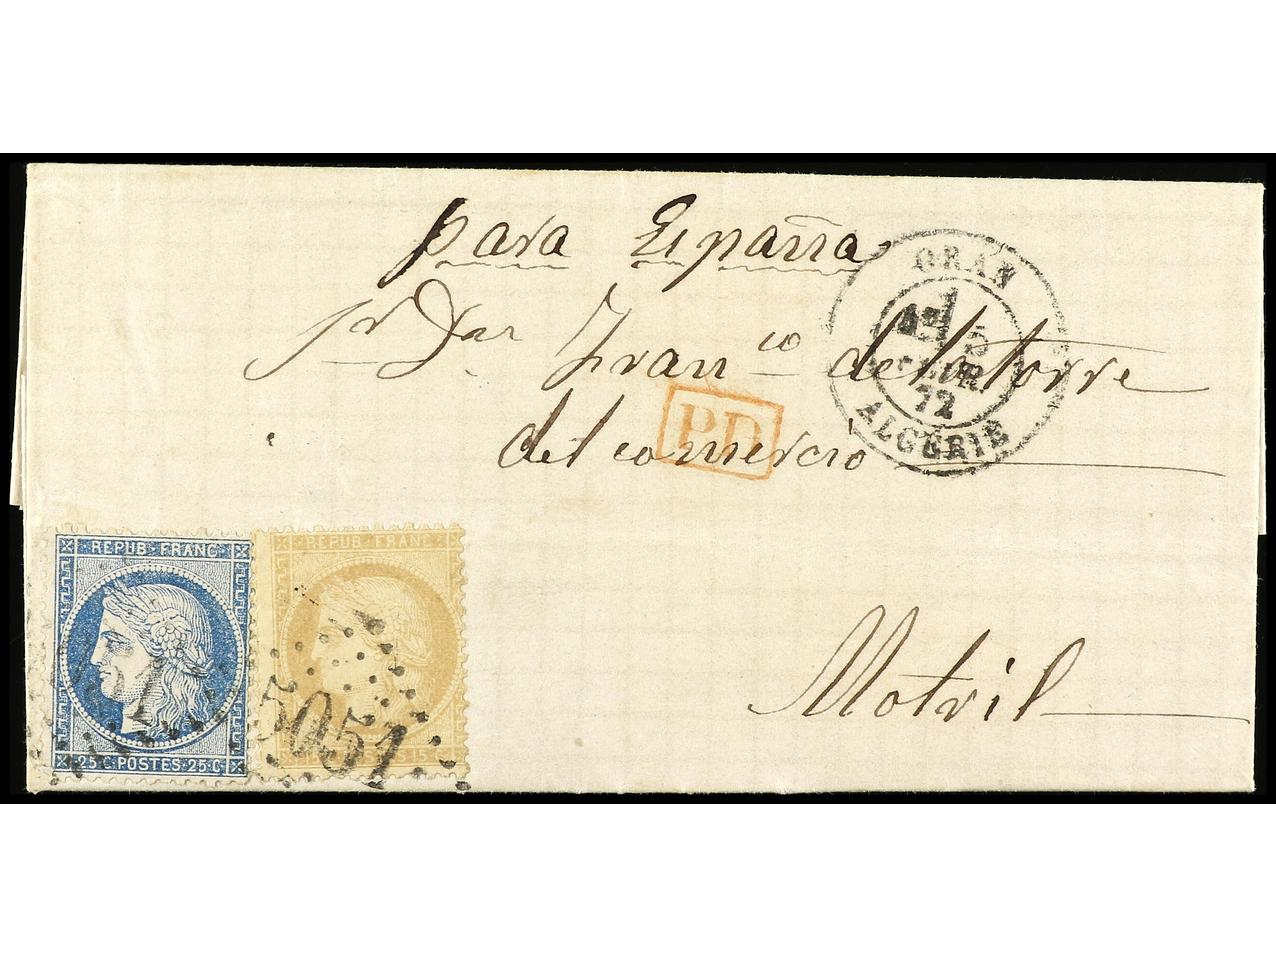 para España
Sr Dn Franco de la torre
del comercio
Motril
ORAN
5
72
ALGÉRIE
PD
REPUB FRANC
25 C POSTES 25 C
REPUB FRANC
15 C
5051